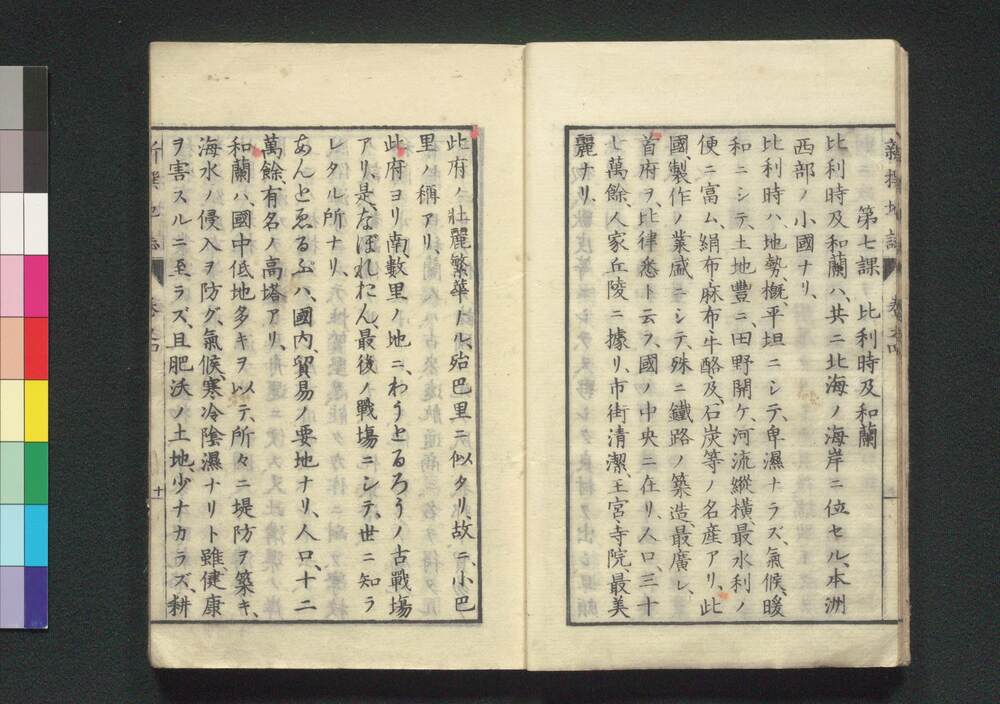 第七課 比利時及和蘭
比利時及和蘭ハ、共ニ北海ノ海岸ニ位セル、本洲
西部ノ小國ナリ、
比利時ハ地勢概、平坦ニシテ、卑濕ナラズ、氣候、暖
和ニシテ、土地豐ニ、田野開ケ、河流縱横、最水利ノ
便ニ富ム、絹布、麻布、牛酪及、石炭等ノ名産アリ、此
國、製作ノ業盛ニシテ、殊ニ鐵路ノ築造、最廣シ、
首府ヲ、比律悉ト云フ、國ノ中央ニ在リ、人口、三十
七萬餘、人家丘陵ニ據リ、市街清潔、王宮、寺院、最美
麗ナリ、
此府ノ壯麗繁華ナル、殆巴里ニ似タリ、故ニ、小巴
里ノ稱アリ、
此府ヨリ南、數里ノ地ニ、わうとるろうノ古戰塲
アリ、是、なぽれおん、最後ノ戰塲ニシテ、世ニ知ラ
レタル所ナリ、
あんとゑるぷハ、國内、貿易ノ要地ナリ、人口、十二
萬餘、有名ノ高塔アリ、
和蘭ハ、國中低地多キヲ以テ、所々ニ堤防ヲ築キ、
海水ノ侵入ヲ防グ、氣候、寒冷陰濕ナリト雖、健康
ヲ害スルニ至ラズ、且肥沃ノ土地、少ナカラズ、耕
十